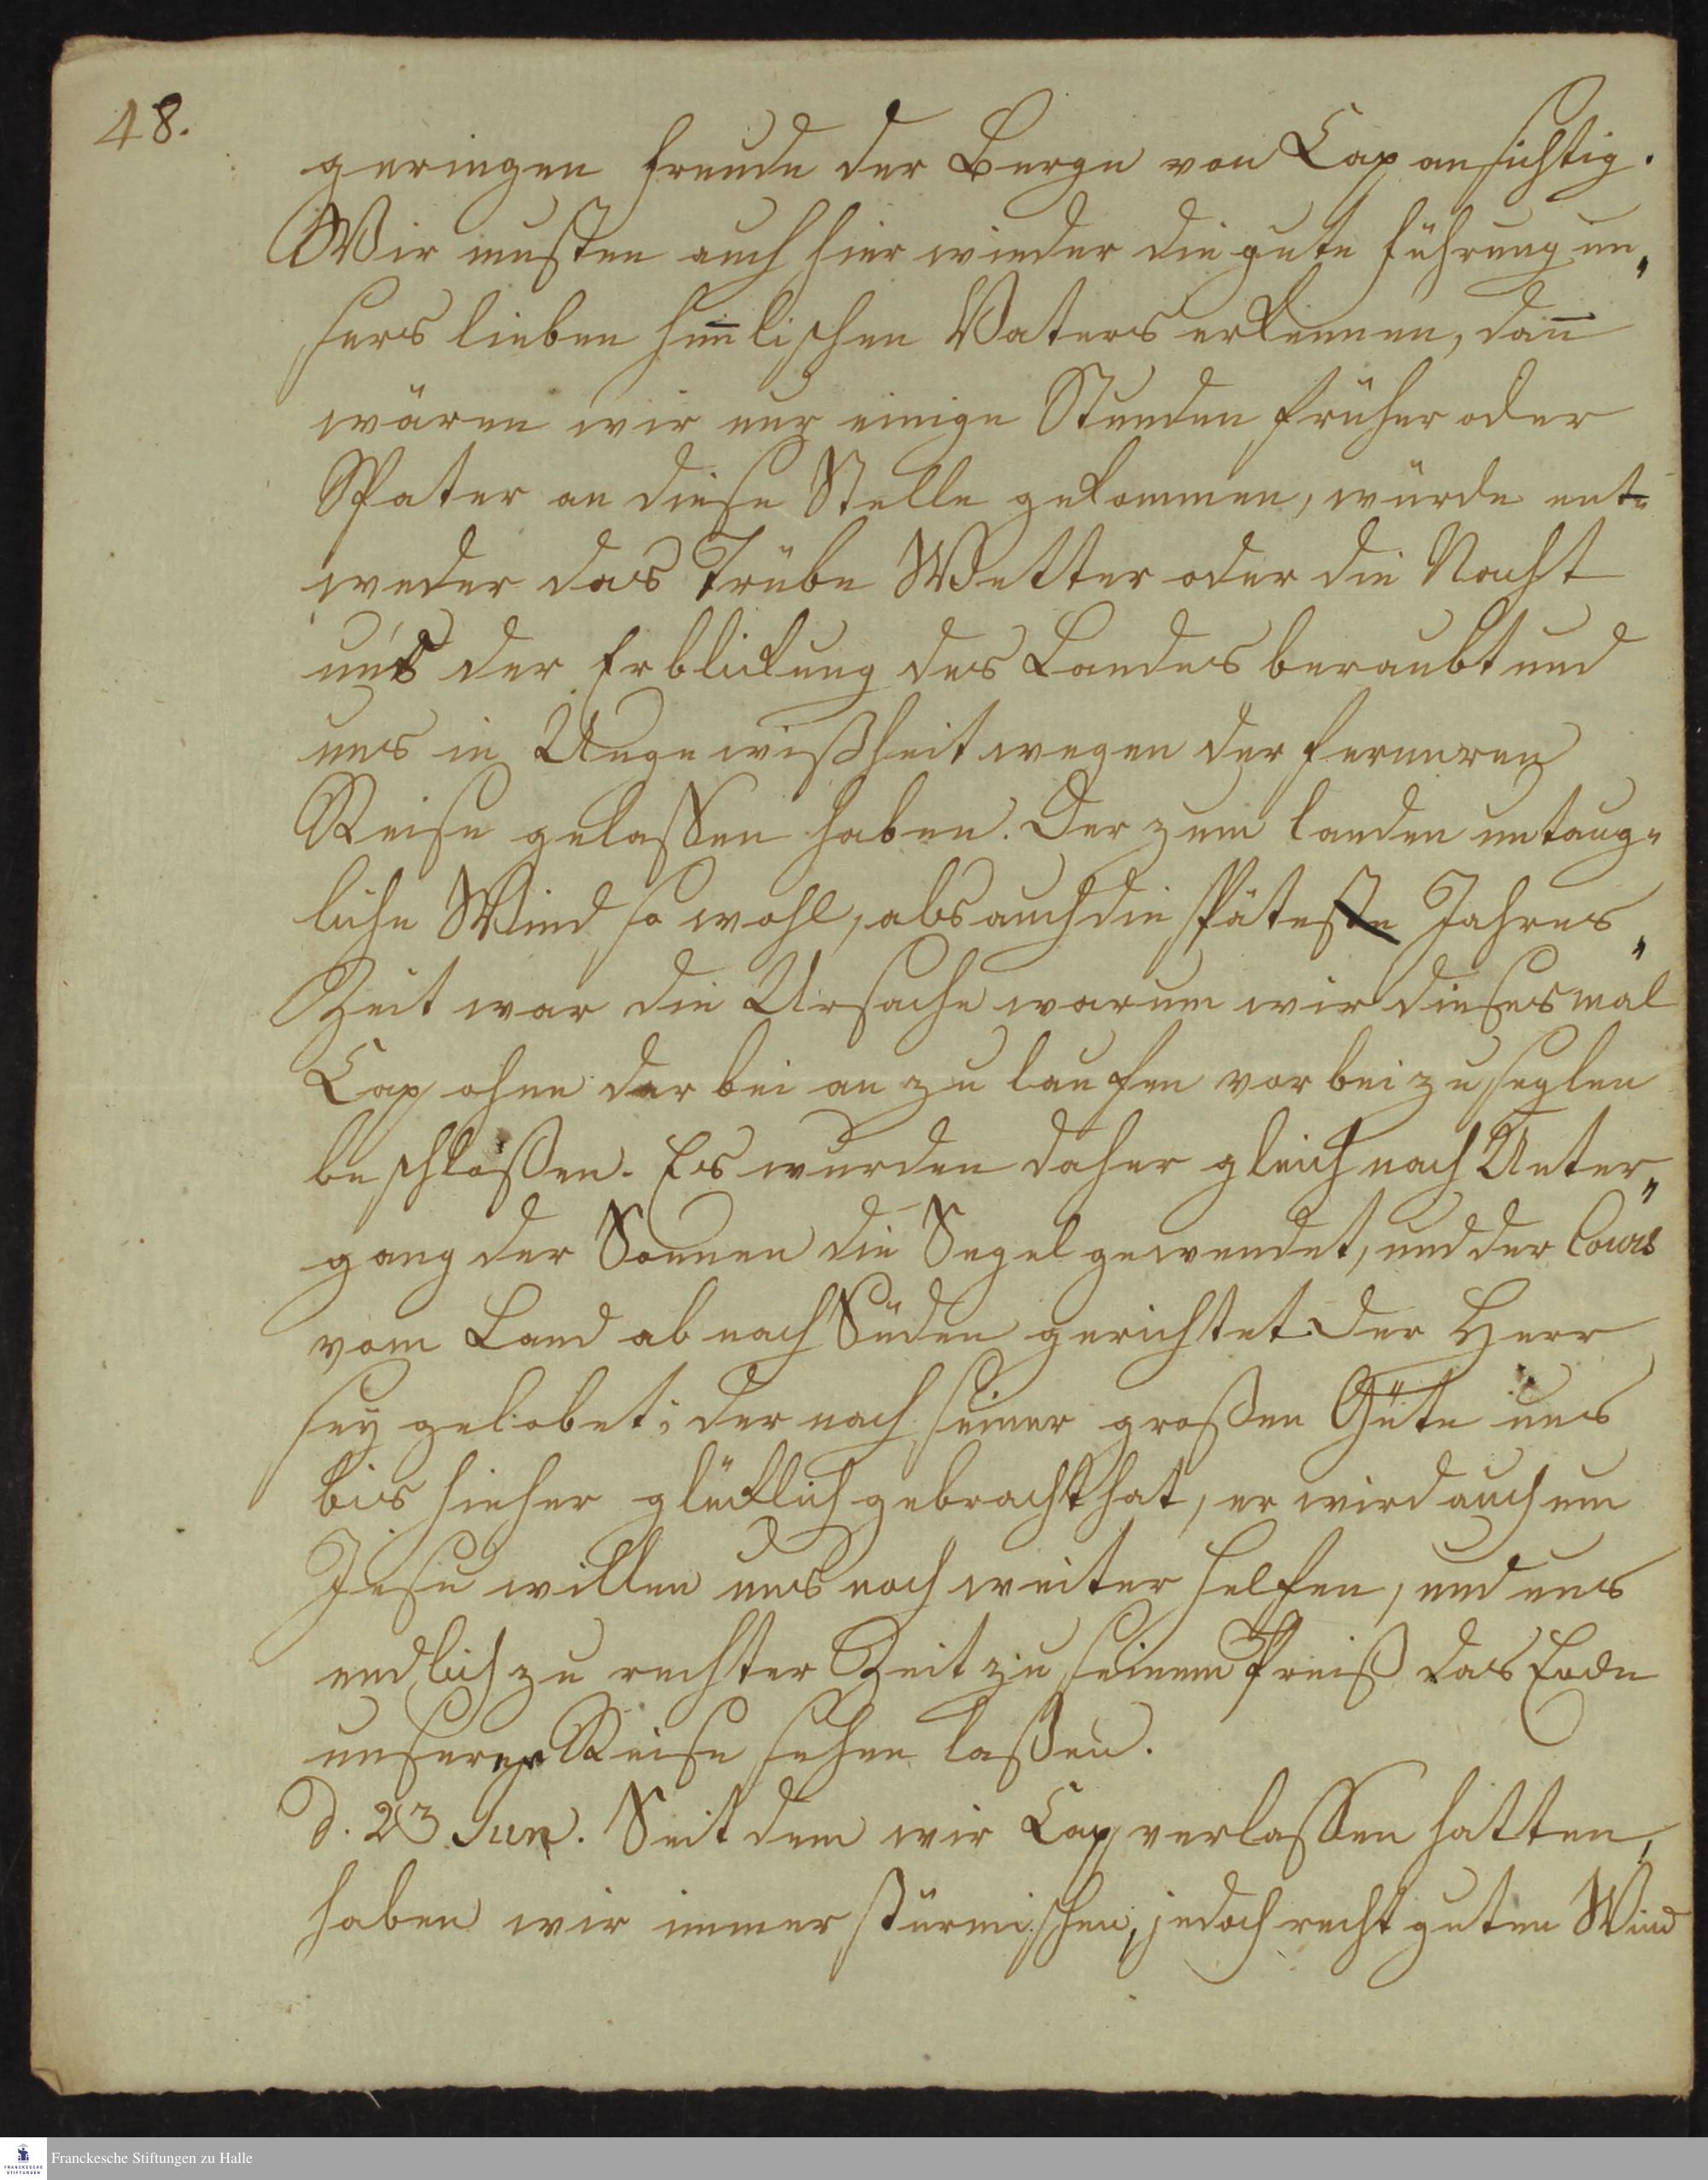 48.
geringen Freude der Berge von Cap ansichtig.
Wir musten auch hier wieder die gute Führung un„
sers lieben him̅lischen Vaters erkennen, dan̅
wären wir nur einige Stunden früher oder
Spater an diese Stelle gekommen, würde ent„
weder das Trübe Wetter oder die Nacht
uns der Erblickung des Landes beraubt und
uns in Ungewißheit wegen der ferneren
Reise gelassen haben. Der zum landen untaug„
liche Wind so wohl, als auch die späteste Jahres„
Zeit war die Ursache warum wir diesesmal
Cap ohne dar bei an zu laufen vorbei zu seglen
beschloßen. Es wurden daher gleich nach Unter„
gang der Sonnen die Segel gewendet, und der Cours
vom Land ab nach Süden gerichtet. Der Herr
sey gelobet; der nach seiner großen Güte uns
bis hieher glücklich gebracht hat, er wird auch um
Jesu willen uns noch weiter helfen, und uns
endlich zu rechter Zeit zu seinem Preiß das Ende
unserer Reise sehen laßen.
d. 23 Jun. Seit dem wir Cap verlassen hatten,
haben wir immer stürmischen, jedoch recht guten Wind
Franckesche Stiftungen zu Halle